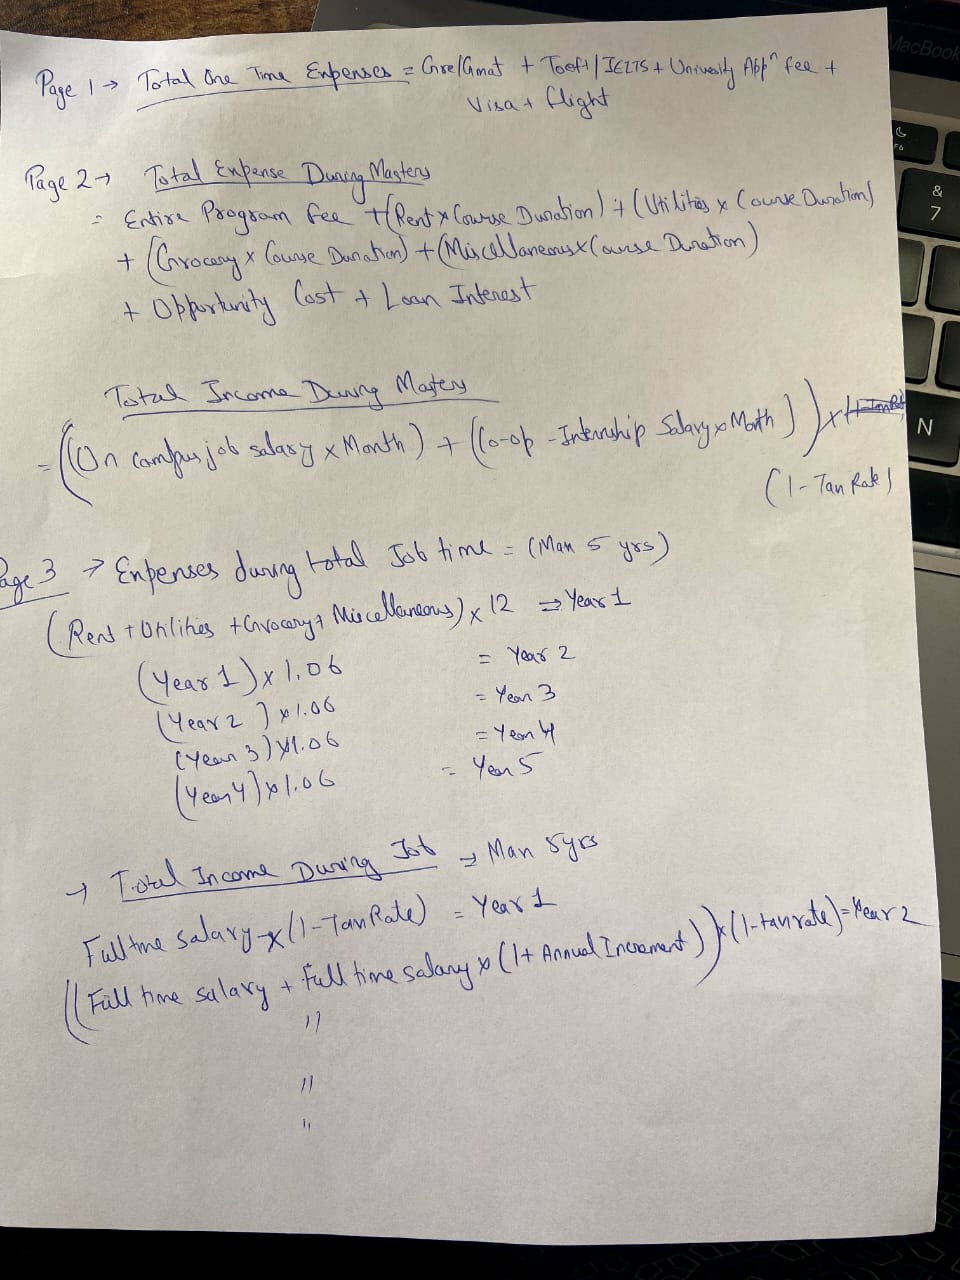 MacBook
Page 1 → Total One Time Expenses = Gre/Gmat + Toefl/IELTS + University Appⁿ fee +
Visa + flight
F6
&
7
Page 2 → Total Expense During Masters
= Entire Program fee + (Rent x Course Duration) + (Utilities x Course Duration)
+ (Grocery x Course Duration) + (Miscellaneous x Course Duration)
+ Opportunity Cost + Loan Interest
Total Income During Masters
= ((On campus job salary x Month) + (Co-op - Internship Salary x Month)) x
N
(1 - Tax Rate)
Page 3 → Expenses during total Job time = (Max 5 yrs)
(Rent + Utilities + Grocery + Miscellaneous) x 12 ⇒ Year 1
(Year 1) x 1.06 = Year 2
(Year 2) x 1.06 = Year 3
(Year 3) x 1.06 = Year 4
(Year 4) x 1.06 = Year 5
→ Total Income During Job → Max 5yrs
Full time salary x (1 - Tax Rate) = Year 1
((Full time salary + full time salary x (1 + Annual Increment)) x (1 - tax rate) = Year 2
"
"
"